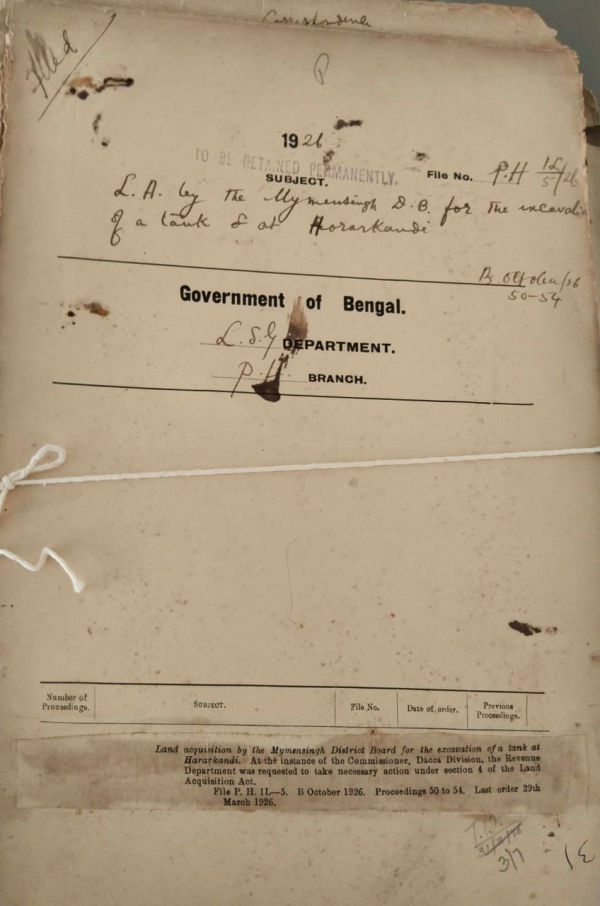 Correspondence
Filed
P
1926
TO BE RETAINED PERMANENTLY.
File No. P.H 1L/5/26
SUBJECT.
L. A. by the Mymensingh D. B. for the excavation
of a tank at Hararkandi
B October/26
50-54
Government of Bengal.
L.S.G DEPARTMENT.
P.H. BRANCH.
Number of Proceedings. SUBJECT. File No. Date of order. Previous Proceedings.
Land acquisition by the Mymensingh District Board for the excavation of a tank at
Hararkandi. At the instance of the Commissioner, Dacca Division, the Revenue
Department was requested to take necessary action under section 4 of the Land
Acquisition Act.
File P. H. 1L—5. B October 1926. Proceedings 50 to 54. Last order 29th
March 1926.
3/7